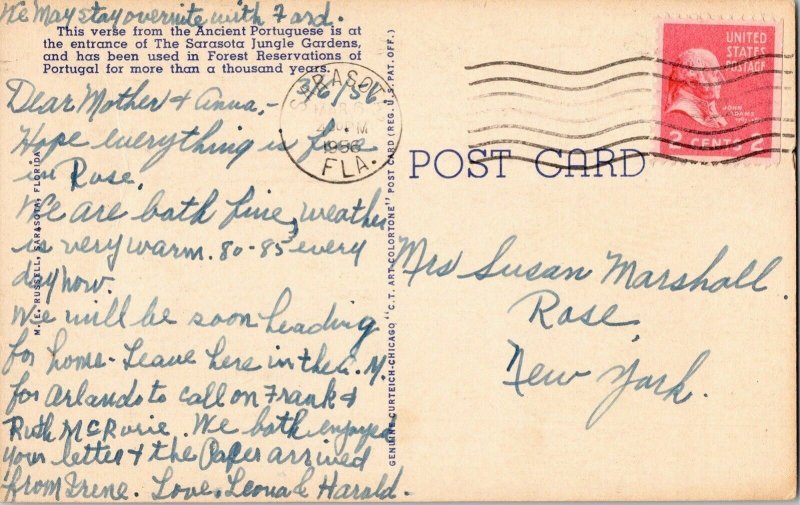 We May stay overnite with F and.
This verse from the Ancient Portuguese is at
the entrance of The Sarasota Jungle Gardens,
and has been used in Forest Reservations of
Portugal for more than a thousand years.
3/6/56.
Dear Mother & Anna,-
Hope everything is fine
in Rose.
We are both fine, weather
is very warm. 80-85 every
day now.
We will be soon heading
for home - Leave here in the A. M.
for Orlando to call on Frank &
Ruth McRorie. We both enjoyed
your letter & the Paper arrived
from Irene. Love, Leona & Harold.
M. E. RUSSELL, SARASOTA, FLORIDA
GENUINE CURTEICH-CHICAGO "C.T. ART-COLORTONE" POST CARD (REG. U.S. PAT. OFF.)
SARASOTA
PM
1956
FLA.
POST CARD
UNITED
STATES
POSTAGE
JOHN
ADAMS
2 CENTS 2
Mrs Susan Marshall.
Rose,
New York.